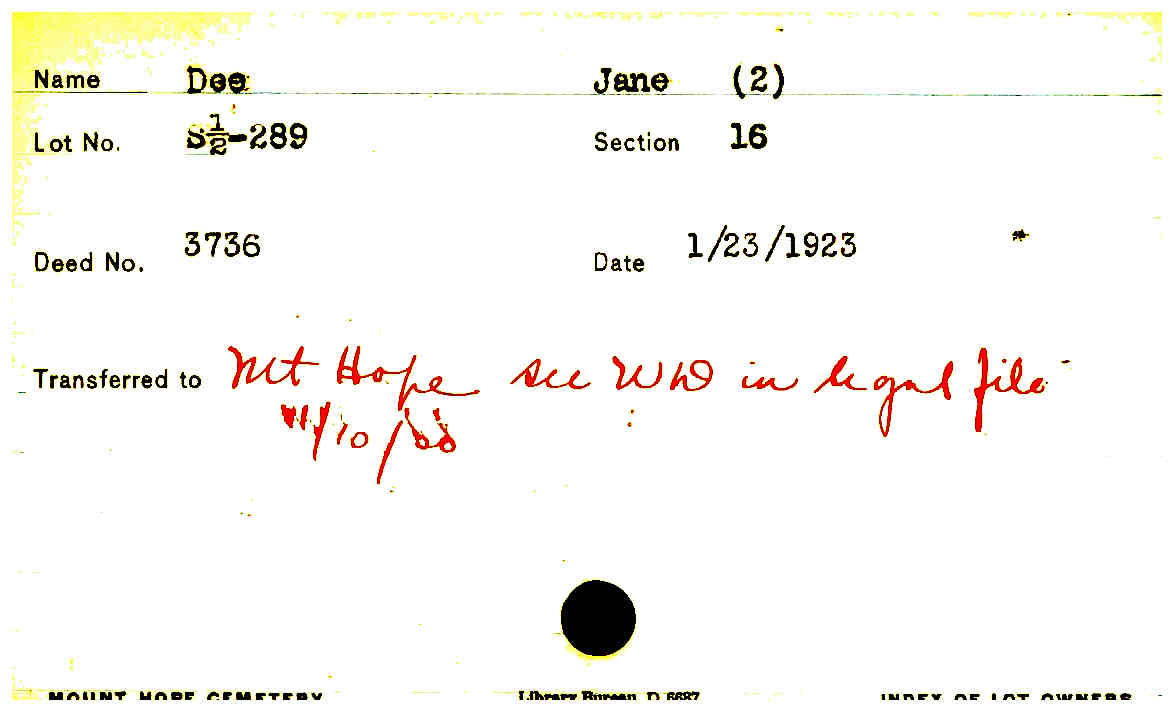 Name Dee Jane (2)
Lot No. S½-289 Section 16
Deed No. 3736 Date 1/23/1923 *
Transferred to Mt Hope see WD in legal file
/10/
MOUNT HOPE CEMETERY Library Bureau D 6687 INDEX OF LOT OWNERS